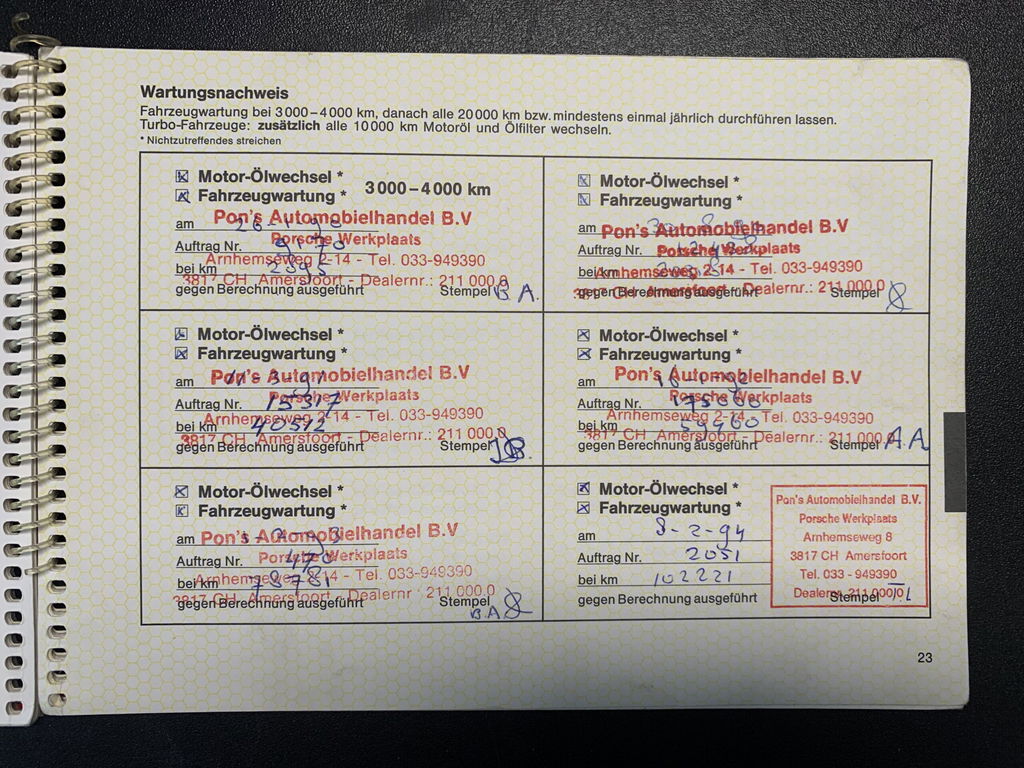 Wartungsnachweis
Fahrzeugwartung bei 3000–4000 km, danach alle 20000 km bzw. mindestens einmal jährlich durchführen lassen.
Turbo-Fahrzeuge: zusätzlich alle 10000 km Motoröl und Ölfilter wechseln.
* Nichtzutreffendes streichen
Motor-Ölwechsel *
Fahrzeugwartung *
3000–4000 km
am 26-1-90
Pon's Automobielhandel B.V
Auftrag Nr. 9170
Porsche Werkplaats
Arnhemseweg 2-14 - Tel. 033-949390
bei km 2895
3817 CH Amersfoort - Dealernr.: 211 000.0
gegen Berechnung ausgeführt
Stempel B A.
Motor-Ölwechsel *
Fahrzeugwartung *
am
Pon's Automobielhandel B.V
Auftrag Nr.
Porsche Werkplaats
Arnhemseweg 2-14 - Tel. 033-949390
bei km
3817 CH Amersfoort - Dealernr.: 211 000.0
gegen Berechnung ausgeführt
Stempel
Motor-Ölwechsel *
Fahrzeugwartung *
am 11-3-91
Pon's Automobielhandel B.V
Auftrag Nr. 15317
Porsche Werkplaats
Arnhemseweg 2-14 - Tel. 033-949390
bei km 40512
3817 CH Amersfoort - Dealernr.: 211 000.0
gegen Berechnung ausgeführt
Stempel
Motor-Ölwechsel *
Fahrzeugwartung *
am
Pon's Automobielhandel B.V
Auftrag Nr.
Porsche Werkplaats
Arnhemseweg 2-14 - Tel. 033-949390
bei km 59460
3817 CH Amersfoort - Dealernr.: 211 000.0
gegen Berechnung ausgeführt
Stempel A.A
Motor-Ölwechsel *
Fahrzeugwartung *
am
Pon's Automobielhandel B.V
Auftrag Nr. 470
Porsche Werkplaats
Arnhemseweg 2-14 - Tel. 033-949390
bei km 78781
3817 CH Amersfoort - Dealernr.: 211 000.0
gegen Berechnung ausgeführt
Stempel
B.A
Motor-Ölwechsel *
Fahrzeugwartung *
am 8-2-94
Auftrag Nr. 2051
bei km 102221
gegen Berechnung ausgeführt
Stempel T.L
Pon's Automobielhandel B.V.
Porsche Werkplaats
Arnhemseweg 8
3817 CH Amersfoort
Tel. 033 - 949390
Dealernr. 211 000/0
23